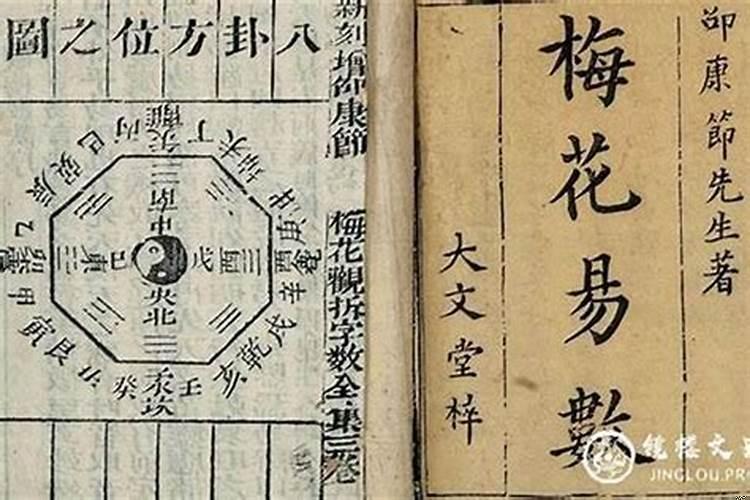 邵康節先生著
梅花易數
大文堂梓
新刻增邵康節
梅花觀拆字數全集三卷
八卦方位之圖
巳 丙 離 丁 未
辰 巽 坤 申
南
中
乙 卯 震 東 己 戊 酉 庚 酉 兌 辛
央
北
甲 寅 艮 丑 癸 子 坎 壬 亥 乾 戌
鏡樓文
JINGLOU.PR